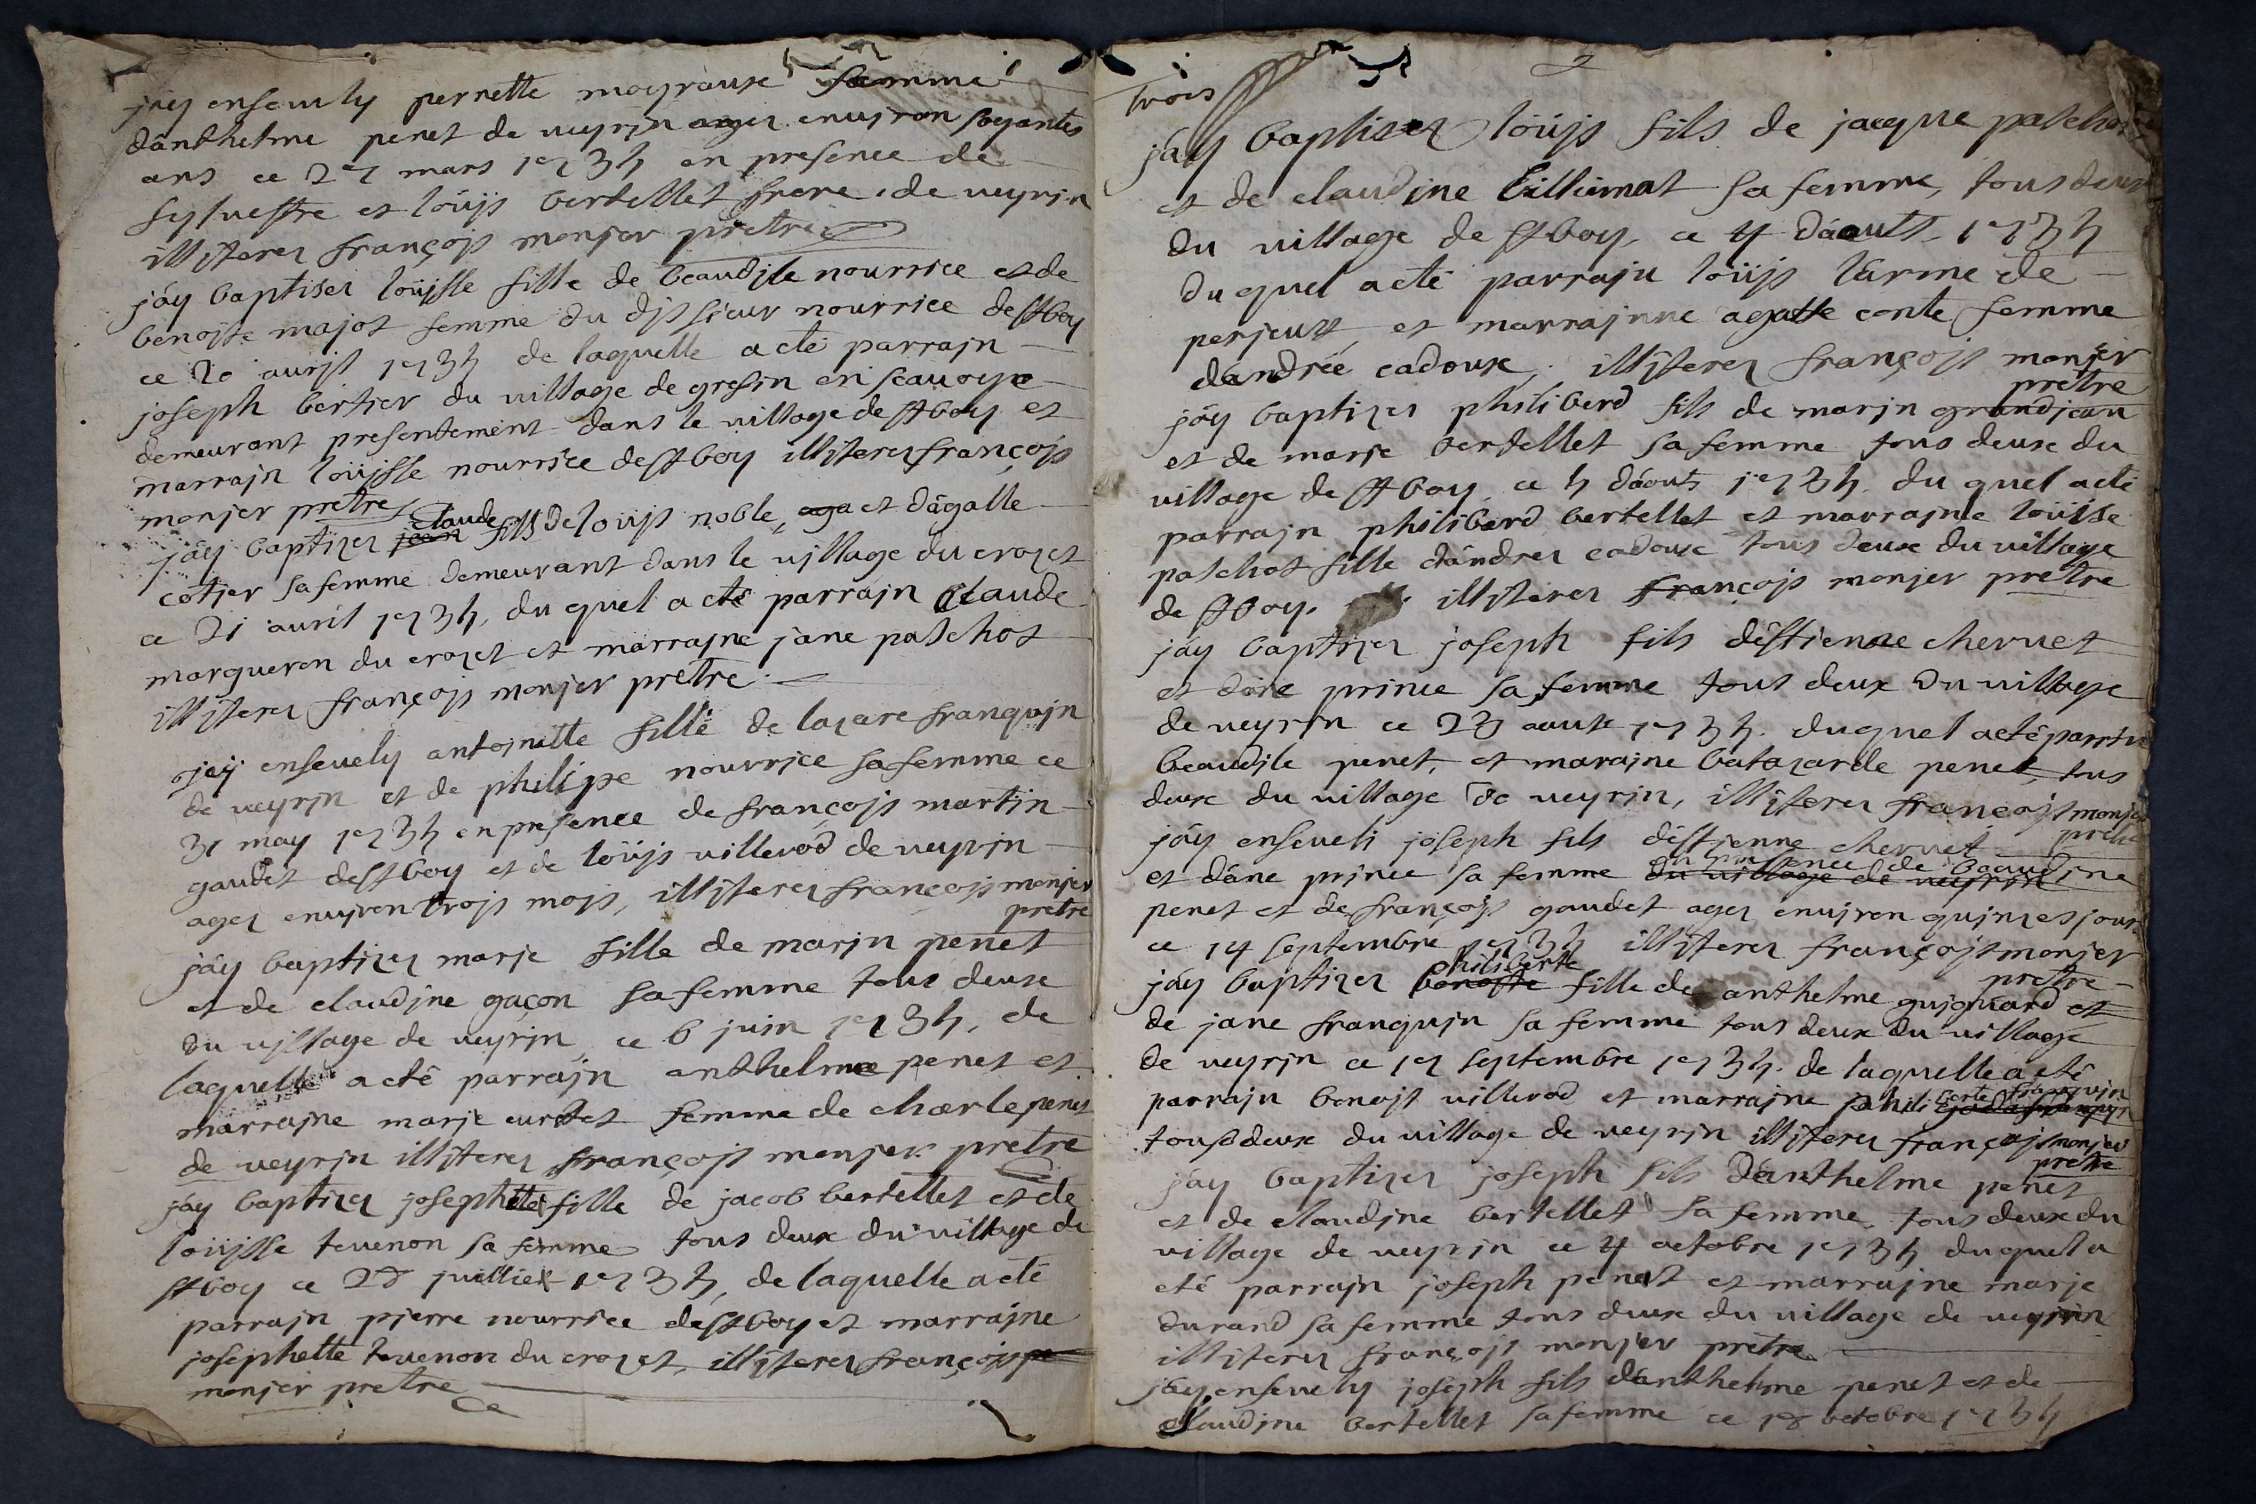 jáy ensevely perrette moyraux femme
d'anthelme penet de veyrin agez environ soyantes
ans ce 27 mars 1735 en presence de
sylvestre et loüjs bertellet frere de veyrin
illiterez françojs monjer prêtre
jáy baptisez loüjsse fille de beaudjle nourrice et de
benojte majot femme du djt sieur nourrice de st boy
ce 20 avrjl 1735 de laquelle a eté parrajn
joseph bertier du village de gresin en scavoye
demeurant presentement dans le village de st boy et
marrajn loüjsse nourrice de st boy illiterez françojs
monjer prêtre
jáy baptizez jean claude fils de loüjs noble, aga et d'agatte
cotjer sa femme demeurant dans le village du crozet
ce 21 avril 1735, du quel a eté parrajn claude
margueron du crozet et marrajne jane patchot
illiterez françojs monjer prêtre
jáy ensevely antojnette fille de lazare franqujn
de veyrjn et de philipe nourrjce sa femme ce
31 may 1735 en presence de françojs martjn
gaudet de st boy et de loüjs villerod de veyrjn
agez envjron trojs mojs, illiterez françojs monjer
prêtre
jáy baptizez marje fille de marjn penet
et de claudjne gaçon sa femme tous deux
du vjllage de veyrjn ce 6 juin 1735, de
laquelle a eté parrajn anthelme penet et
marrajne marje curtet femme de charle penet
de veyrjn illiterez françojs monjer prêtre
jáy baptizez josephte fille de jacob bertellet et de
loüjsse tevenon sa femme tous deux du village de
st boy ce 28 juilliet 1735, de laquelle a eté
parrajn pjerre nourrice de st boy et marrajne
josephette tevenon du crozet, illiterez françojs
monjer prêtre
trois
jáy baptisez loüjs fils de jacque patchot
et de claudine billiemat sa femme, tous deux
du village de st boy, ce 4 d'aoult 1735
du quel a eté parrajn loüjs l'arme de
perjeux et marrajnne agatte conte femme
d'andrée cadoux, illiterez françojs monjer
prêtre
jáy baptizez philiberd fils de marjn grandjean
et de marje bertellet sa femme tous deux du
village de st boy, ce 5 d'aout 1735, du quel a eté
parrajn philiberd bertellet et marrajne loüjse
patchot fille d'andrez cadoux tous deux du village
de st boy. illiterez françojs monjer prêtre
jáy baptizez joseph fils d'éstienne chervet
et d'ane prince sa femme tous deux du village
de veyrjn ce 23 aoust 1735. du quel a eté parrin
beaudjle penet, et marajne batazarde penet, tous
deux du village de veyrjn, illiterez françojs monjer
prêtre
jáy enseveli joseph fils d'éstjenne chervet
et d'áne prince sa femme du village de veyrjn en presence de beaudjne
penet et de françojs gaudet agez environ quinzes jours
ce 14 septembre 1735 illiterez françojs monjer
prêtre
jáy baptizez benojte philiberte fille de anthelme gujguard et
de jane franqujn sa femme tous deux du village
de veyrjn ce 17 septembre 1735. de laquelle a eté
parrajn benojt villerod et marrajne philiberte franqujn
tous deux du village de veyrjn illiterez françojs monjer
prêtre
jáy baptizez joseph fils d'anthelme penet
et de claudjne bertellet sa femme, tous deux du
village de veyrjn ce 4 octobre 1735 du quel a
eté parrajn joseph penet et marrajne marje
durand sa femme tous deux du village de veyrjn
illiterez françojs monjer prêtre
jáy ensevely joseph fils d'anthelme penet et de
claudjne bertellet sa femme ce 18 octobre 1735